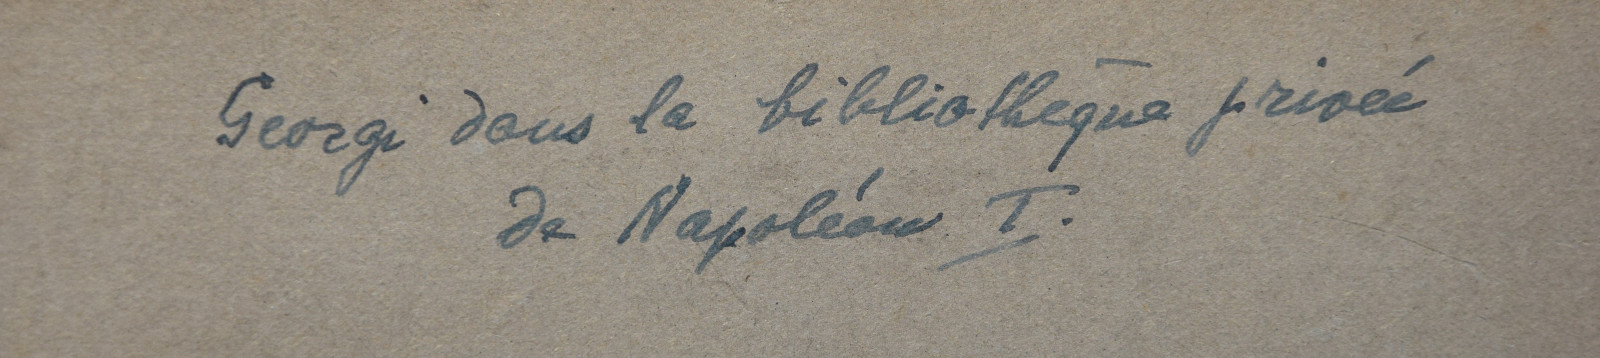 Georgi dans la bibliothēque privée
de Napoléon I.